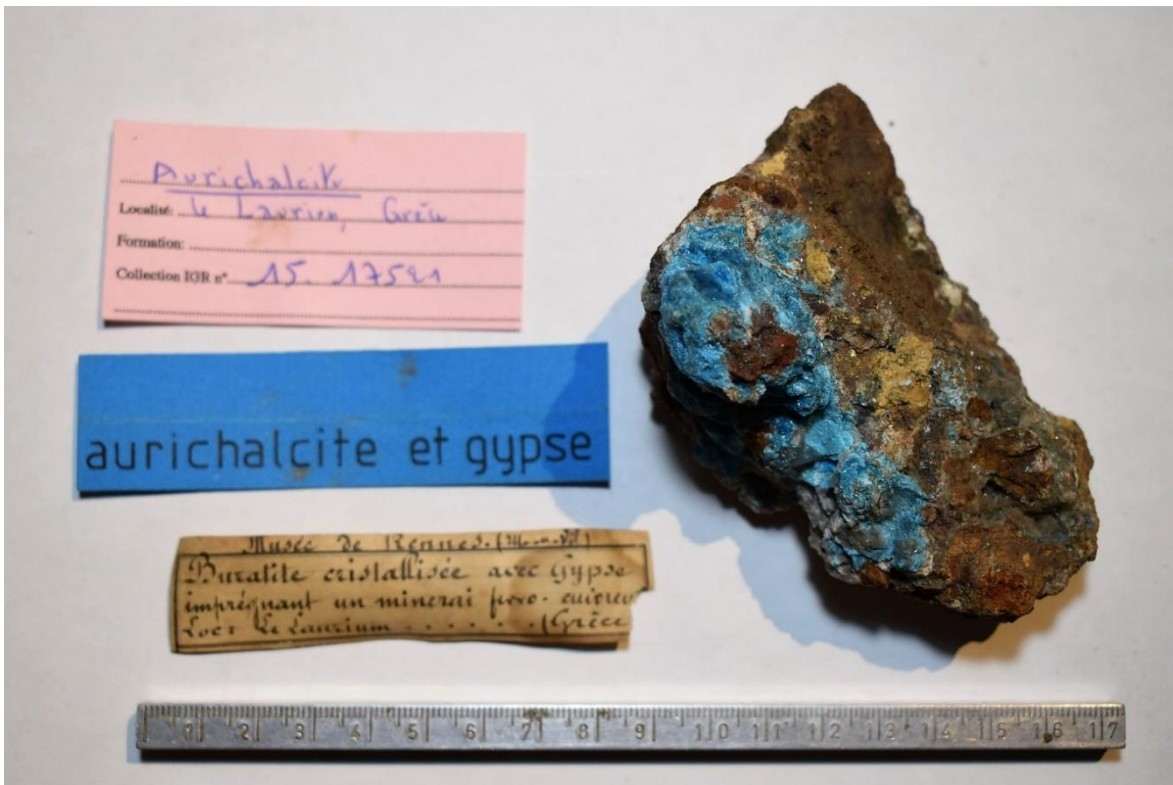 Aurichalcite
Localité: le Laurion, Grèce
Formation:
Collection IGR n° 15. 17521
aurichalcite et gypse
Musée de Rennes.
Buratite cristallisée avec Gypse
imprégnant un minerai ferro-cuivreu
Loc^s Le Laurium . . . . . . (Grèce
1 2 3 4 5 6 7 8 9 10 11 12 13 14 15 16 17